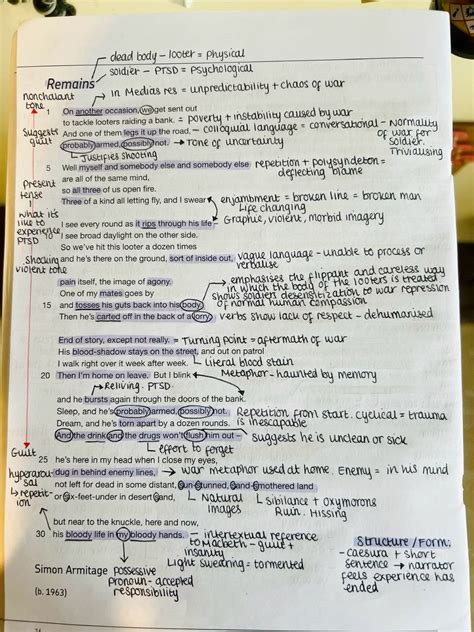 dead body - looter = physical
Remains
soldier - PTSD = psychological
nonchalant tone
in Medias res = unpredictability + chaos of war
1 On another occasion, we get sent out
to tackle looters raiding a bank. = poverty + instability caused by war
Suggests guilt
And one of them legs it up the road, - colloquial language = conversational - Normality of war for soldier. Trivialising
probably armed, possibly not. → Tone of uncertainty
↳ Justifies shooting
5 Well myself and somebody else and somebody else repetition + polysyndeton = deflecting blame
are all of the same mind,
Present tense
so all three of us open fire.
Three of a kind all letting fly, and I swear enjambment = broken line = broken man
Life changing
what it's like to experience PTSD
I see every round as it rips through his life - Graphic, violent, morbid imagery
10 I see broad daylight on the other side.
So we've hit this looter a dozen times
Shocking violent tone
and he's there on the ground, sort of inside out, vague language - unable to process or verbause
pain itself, the image of agony.
emphasises the flippant and careless way in which the body of the looters is treated
One of my mates goes by
shows soldiers desensitization to war repression of normal human compassion
15 and tosses his guts back into his body.
Then he's carted off in the back of a lorry. verbs show lack of respect - dehumanised
End of story, except not really. = Turning point = aftermath of war
His blood-shadow stays on the street, and out on patrol
I walk right over it week after week. ↳ Literal blood stain
20 Then I'm home on leave. But I blink Metaphor - haunted by memory
↳ Reliving PTSD
and he bursts again through the doors of the bank.
Sleep, and he's probably armed, possibly not. Repetition from start. cyclical = trauma is inescapable
Dream, and he's torn apart by a dozen rounds.
And the drink and the drugs won't flush him out - suggests he is unclean or sick
↳ effort to forget
Guilt
25 he's here in my head when I close my eyes,
hyperarousal
↳ repetition
dug in behind enemy lines, → war metaphor used at home. Enemy = in his mind
not left for dead in some distant, sun-stunned, sand-smothered land
or six-feet-under in desert sand,
↳ Natural images
↳ Sibilance + oxymorons
Ruin. Hissing
but near to the knuckle, here and now,
30 his bloody life in my bloody hands. - intertextual reference to Macbeth - guilt + insanity
Light swearing = tormented
Simon Armitage
(b. 1963)
possessive pronoun - accepted responsibility
Structure / Form:
- caesura + short sentence → narrator feels experience has ended